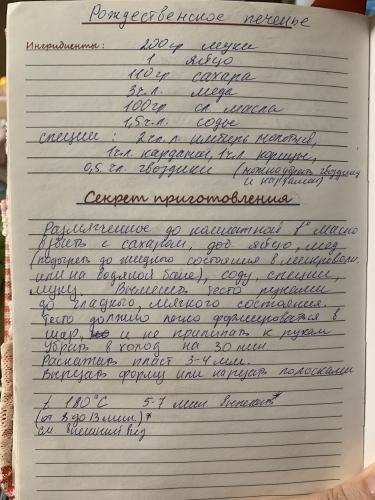 Рождественское печенье
Ингридиенты: 200гр муки
1 яйцо
110гр сахара
3ч.л. меда
100гр сл. масла
1,5ч.л. соды
специи: 2ч.л. имбирь молотый,
1ч.л. кардамон, 1ч.л. корицы,
0,5 ч.л. гвоздики (можно убрать гвоздику
и кардамон)
Секрет приготовления
Размягченное до комнатной t° масло
взбить с сахаром, доб яйцо, мед
(подогреть до жидкого состояния в микроволн.
или на водяной бане), соду, специи,
муку. Вымесить тесто руками
до гладкого, мягкого состояния.
Тесто должно легко формироваться в
шар, и не прилипать к рукам
Убрать в холод на 30 мин
Раскатать пласт 3-4 мм.
Вырезать форму или нарезать полосками
t 180°C 5-7 мин выпекать*
(от 8 до 13 мин.)*
см внешний вид